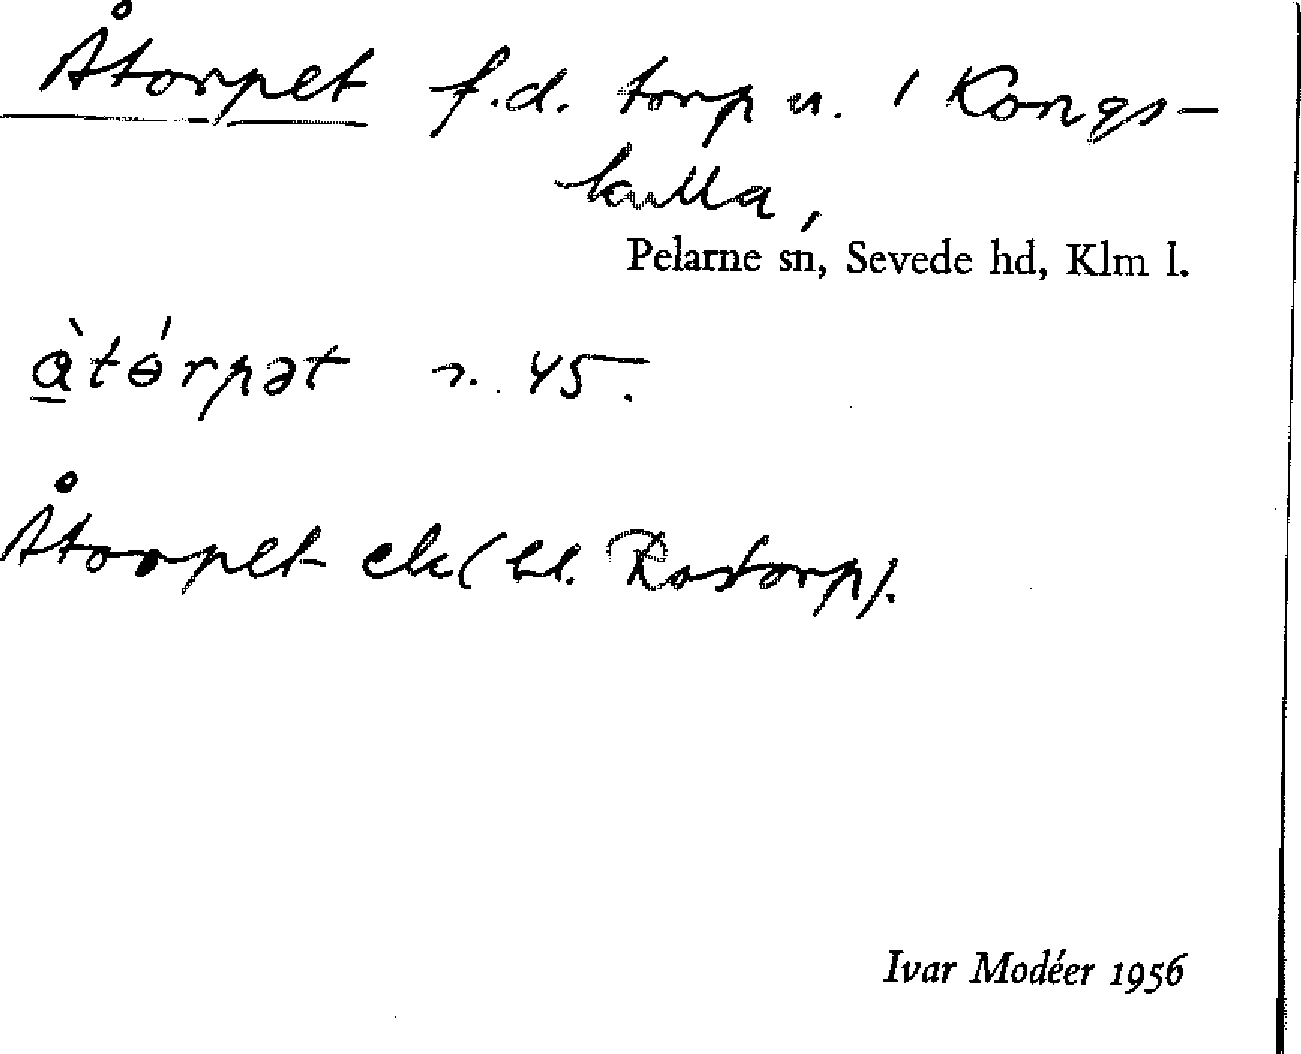 Åtorpet f.d. torp u. 1 Kongs-
kulla,
Pelarne sn, Sevede hd, Klm l.
à̱tɵ́rpət n. 45.
Åtorpet ek( bl. Rostorp).
Ivar Modéer 1956